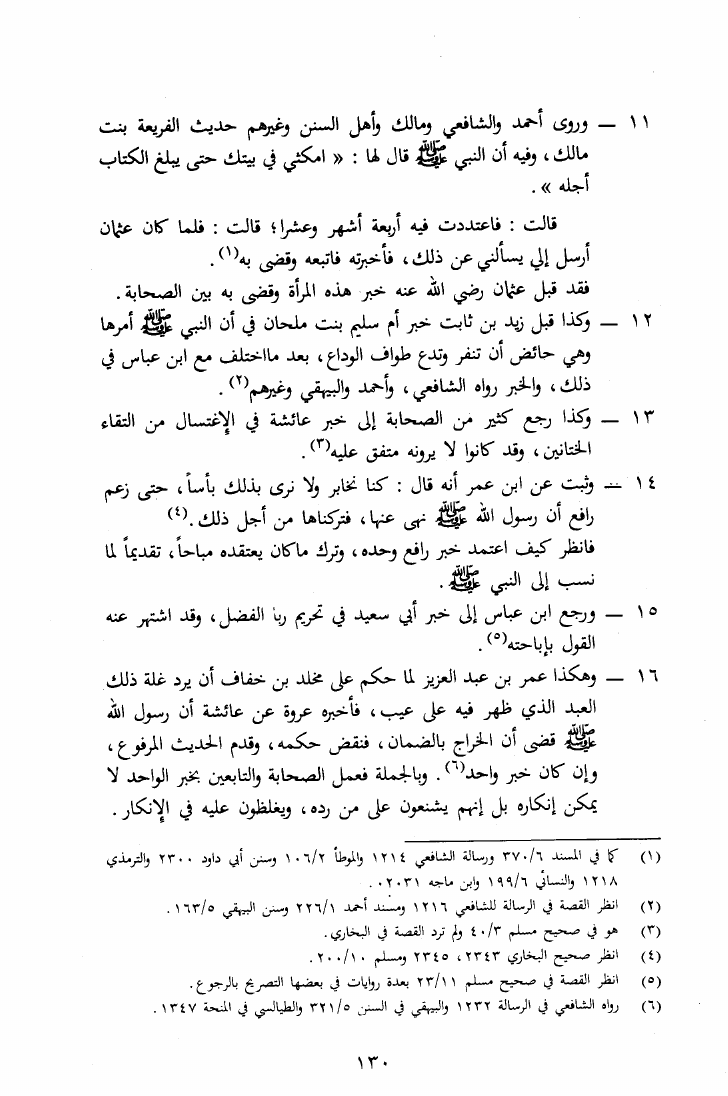 ١١ ــ وروى أحمد والشافعي ومالك وأهل السنن وغيرهم حديث الفريعة بنت
مالك، وفيه أن النبي ﷺ قال لها : « امكثي في بيتك حتى يبلغ الكتاب
أجله » .
قالت : فاعتددت فيه أربعة أشهر وعشرا؛ قالت : فلما كان عثمان
أرسل إلي يسألني عن ذلك، فأخبرته فاتبعه وقضى به(١) .
فقد قبل عثمان رضي الله عنه خبر هذه المرأة وقضى به بين الصحابة .
١٢ ــ وكذا قبل زيد بن ثابت خبر أم سليم بنت ملحان في أن النبي ﷺ أمرها
وهي حائض أن تنفر وتدع طواف الوداع، بعد مااختلف مع ابن عباس في
ذلك، والخبر رواه الشافعي، وأحمد والبيهقي وغيرهم(٢) .
١٣ ــ وكذا رجع كثير من الصحابة إلى خبر عائشة في الإغتسال من التقاء
الختانين، وقد كانوا لا يرونه متفق عليه(٣) .
١٤ ــ وثبت عن ابن عمر أنه قال : كنا نخابر ولا نرى بذلك بأساً، حتى زعم
رافع أن رسول الله ﷺ نهى عنها، فتركناها من أجل ذلك .(٤)
فانظر كيف اعتمد خبر رافع وحده، وترك ماكان يعتقده مباحاً، تقديماً لما
نسب إلى النبي ﷺ .
١٥ ــ ورجع ابن عباس إلى خبر أبي سعيد في تحريم ربا الفضل، وقد اشتهر عنه
القول بإباحته(٥) .
١٦ ــ وهكذا عمر بن عبد العزيز لما حكم على مخلد بن خفاف أن يرد غلة ذلك
العبد الذي ظهر فيه على عيب، فأخبره عروة عن عائشة أن رسول الله
ﷺ قضى أن الخراج بالضمان، فنقض حكمه، وقدم الحديث المرفوع،
وإن كان خبر واحد(٦) . وبالجملة فعمل الصحابة والتابعين بخبر الواحد لا
يمكن إنكاره بل إنهم يشنعون على من رده، ويغلظون عليه في الإنكار .
(١) كما في المسند ٣٧٠/٦ ورسالة الشافعي ١٢١٤ والموطأ ١٠٦/٢ وسنن أبي داود ٢٣٠٠ والترمذي
١٢١٨ والنسائي ١٩٩/٦ وابن ماجه ٢٠٣١ .
(٢) انظر القصة في الرسالة للشافعي ١٢١٦ ومسند أحمد ٢٢٦/١ وسنن البيهقي ١٦٣/٥ .
(٣) هو في صحيح مسلم ٤٠/٣ ولم ترد القصة في البخاري .
(٤) انظر صحيح البخاري ٢٣٤٣، ٢٣٤٥ ومسلم ٢٠٠/١٠ .
(٥) انظر القصة في صحيح مسلم ٢٣/١١ بعدة روايات في بعضها التصريح بالرجوع .
(٦) رواه الشافعي في الرسالة ١٢٣٢ والبيهقي في السنن ٣٢١/٥ والطيالسي في المنحة ١٣٤٧ .
١٣٠